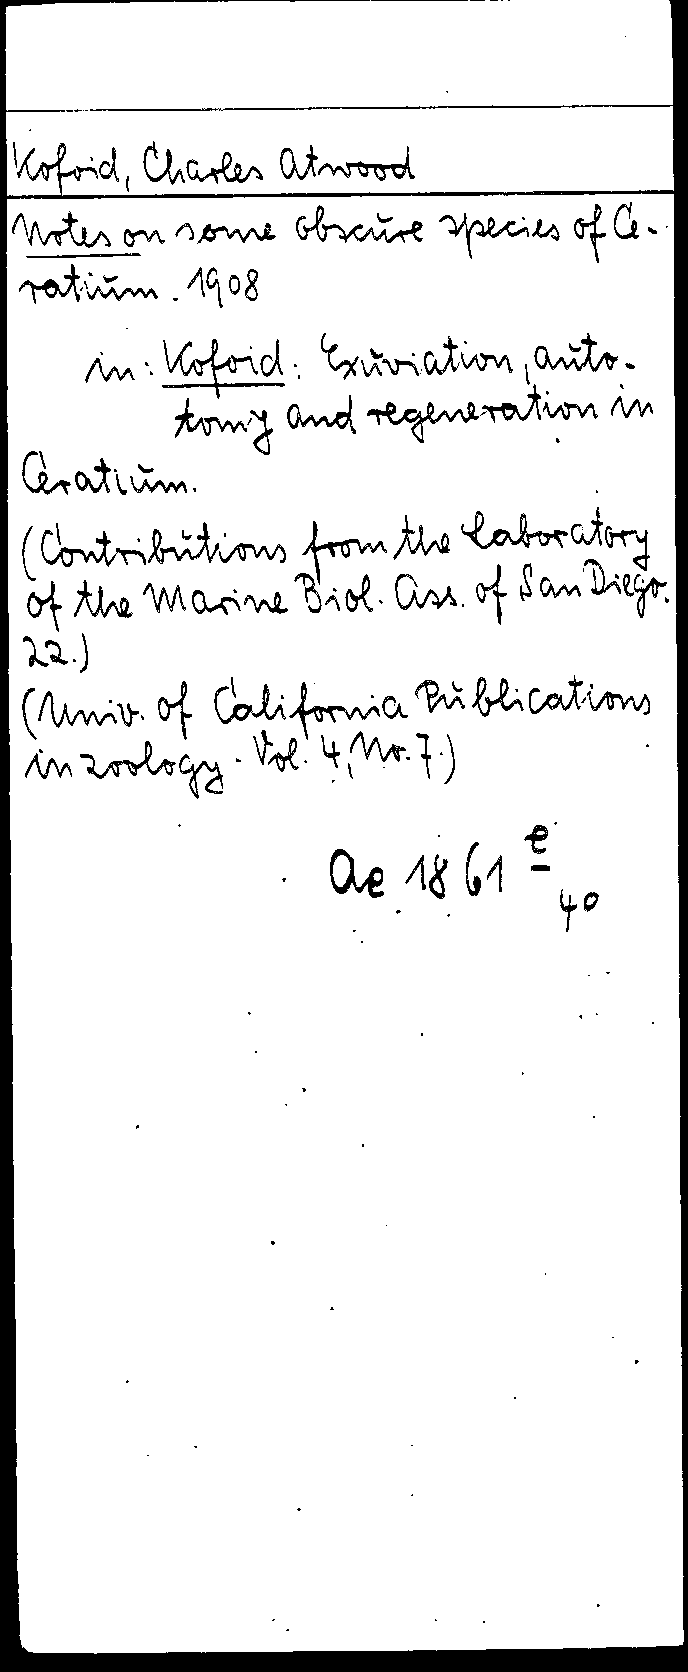 Kofoid, Charles Atwood
Notes on some obscure species of Ce-
ratium. 1908
in: Kofoid: Exuviation, auto-
tomy and regeneration in
Ceratium.
(Contributions from the Laboratory
of the Marine Biol. Ass. of San Diego.
22.)
(Univ. of California Publications
in zoology. Vol. 4, No. 7.)
Ae 1861 e
40